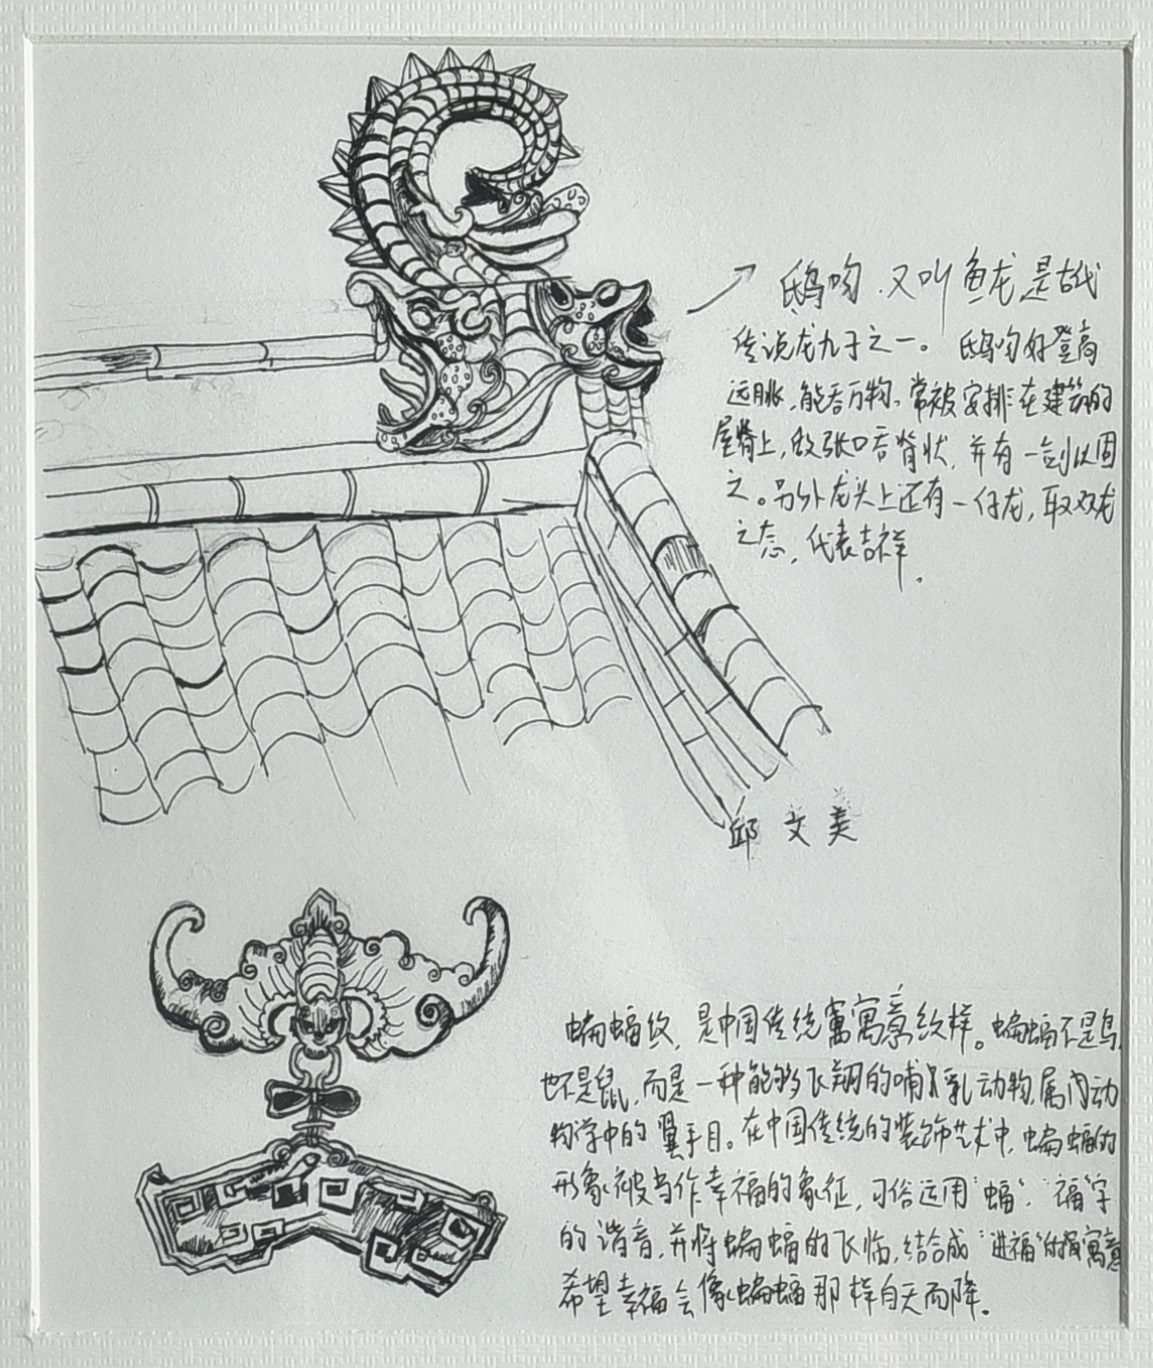 鸱吻.又叫鱼龙,是古代
传说龙九子之一。鸱吻好登高
远眺,能吞万物,常被安排在建筑的
屋脊上,做张口吞脊状,并有一剑以固
之。另外龙头上还有一仔龙,取双龙
之态,代表吉祥.
邱文美
蝙蝠纹,是中国传统寓意纹样。蝙蝠不是鸟,
也不是鼠,而是一种能够飞翔的哺乳动物,属
物学中的翼手目。在中国传统的装饰艺术中,蝙蝠的
形象被当作幸福的象征,习俗运用"蝠"、"福"字
的谐音,并将蝙蝠的飞临,结合成"进福"的寓意
希望幸福会像蝙蝠那样自天而降。